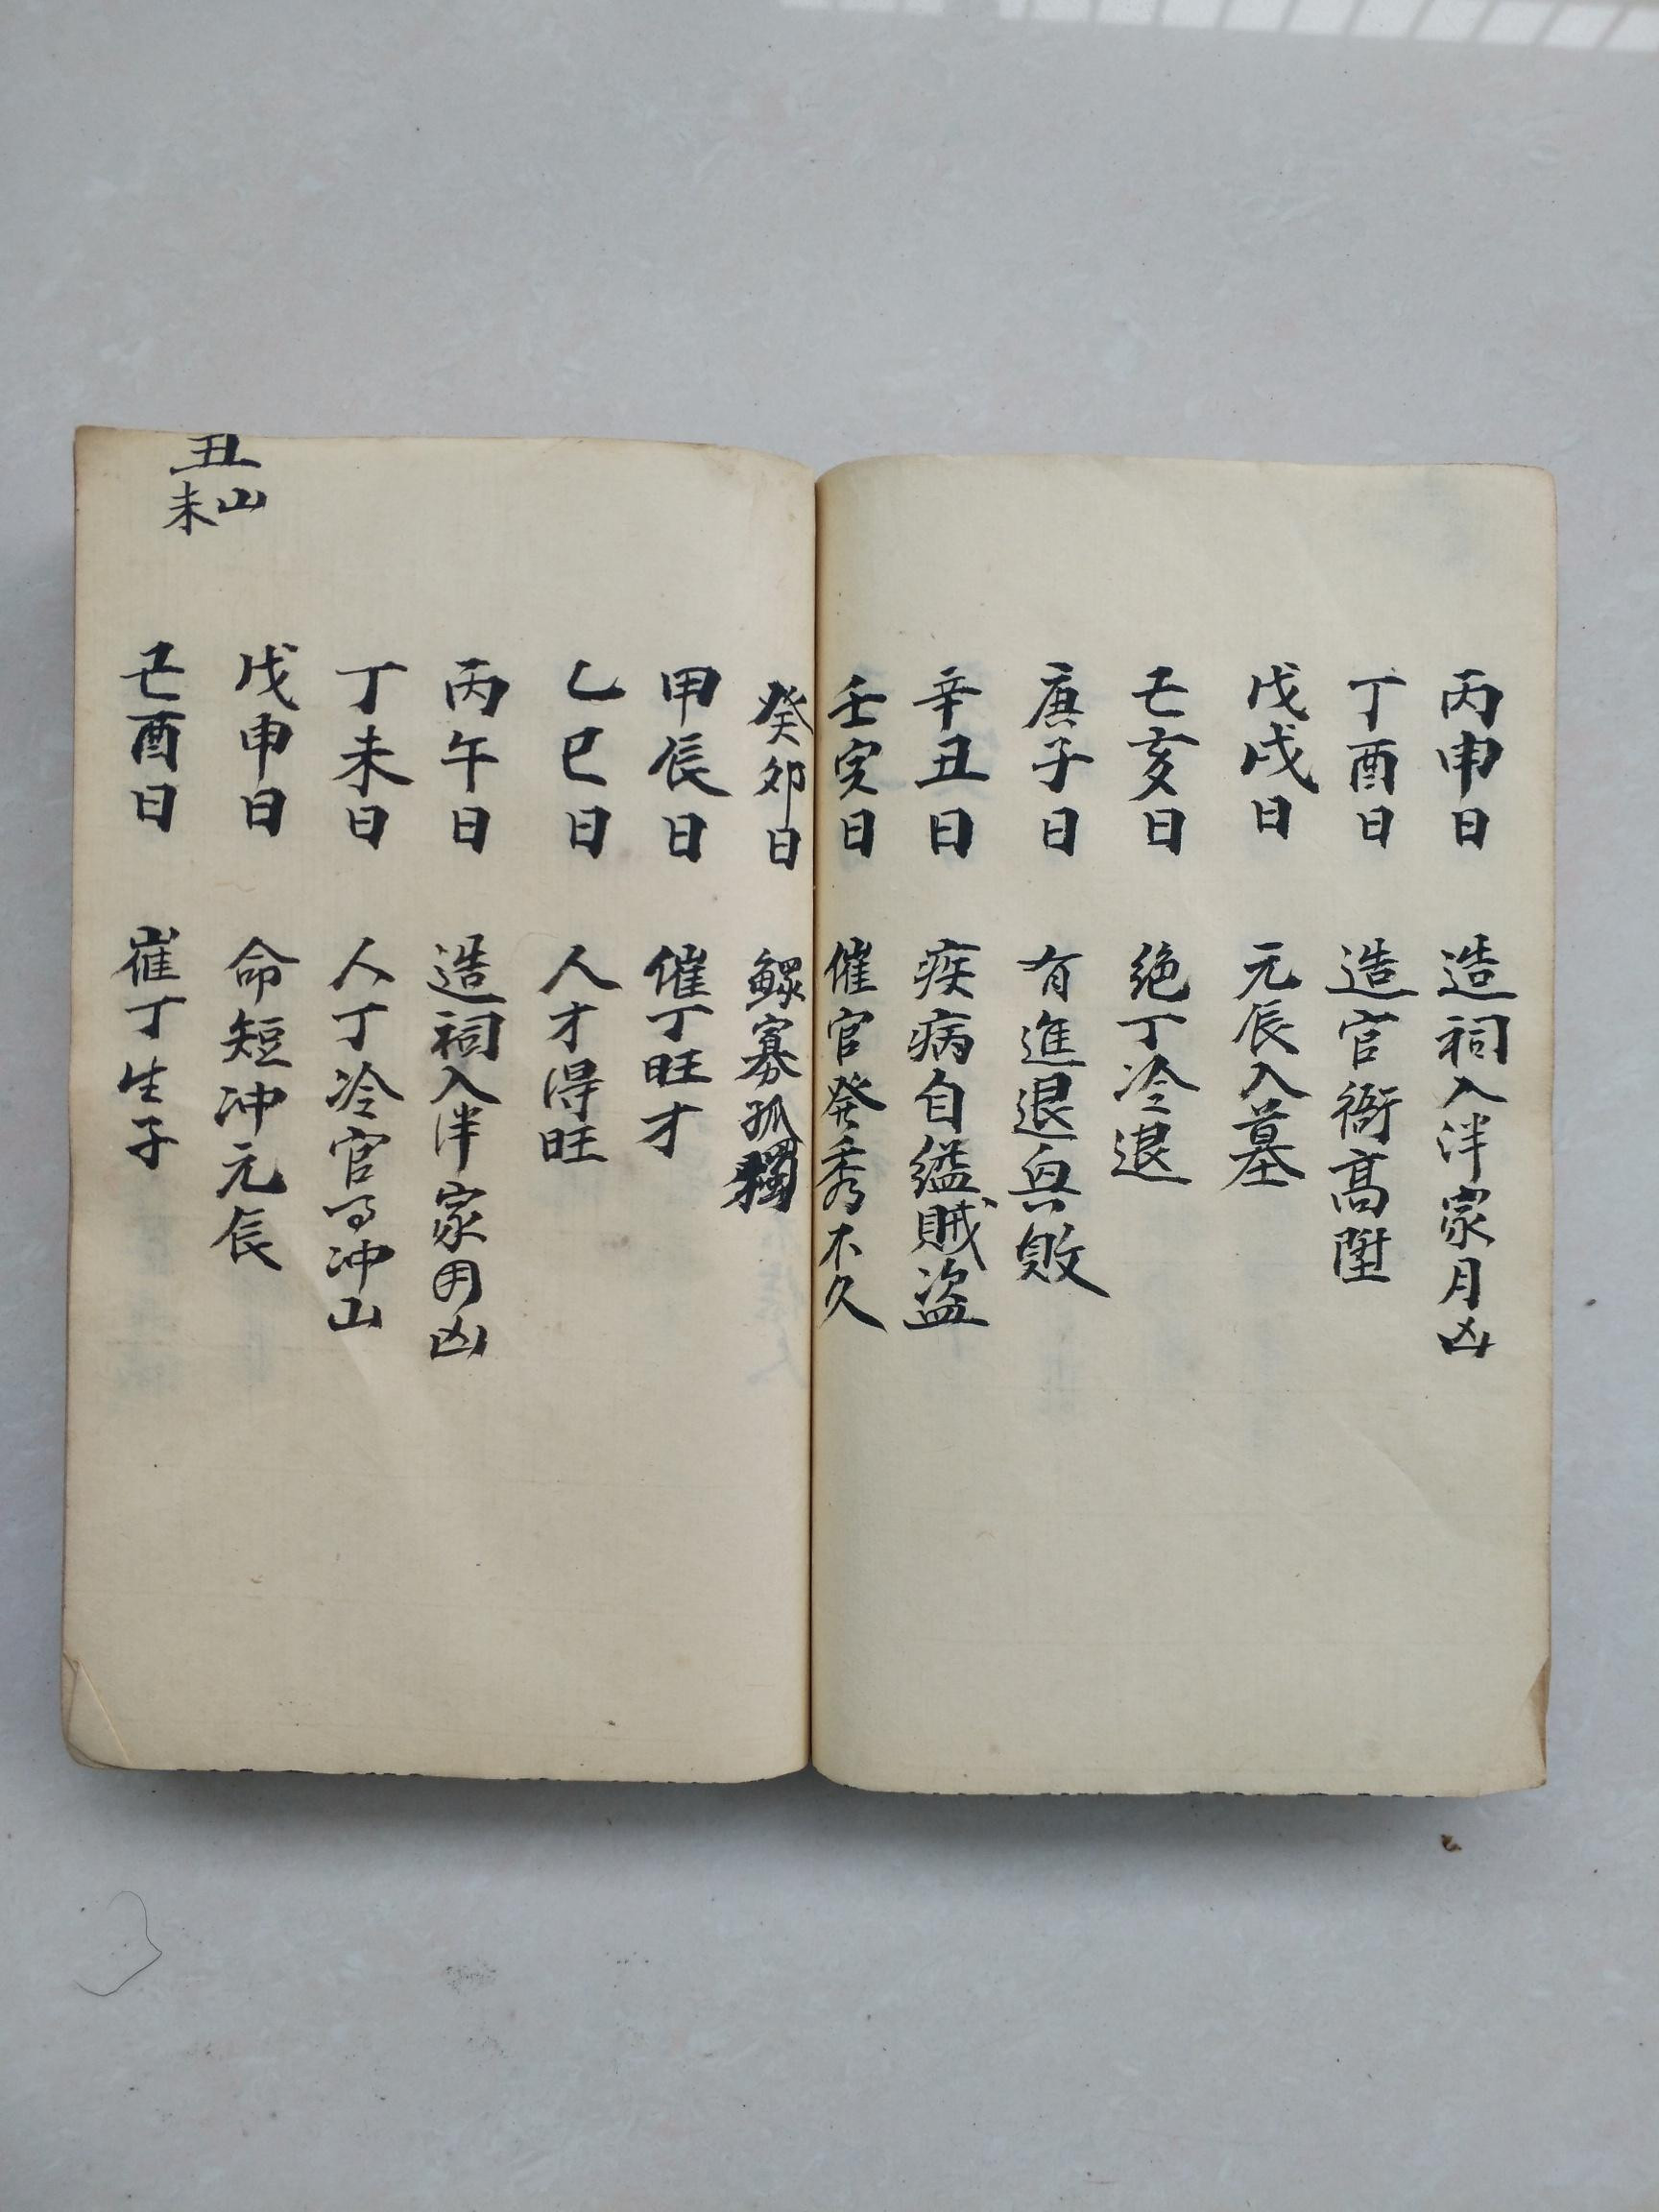 丙申日 造祠入泮家月凶
丁酉日 造官衙高陞
戊戌日 元辰入墓
己亥日 绝丁冷退
庚子日 有進退興敗
辛丑日 疾病自缢賊盗
壬寅日 催官発秀不久
癸卯日 鳏寡孤獨
甲辰日 催丁旺才
乙巳日 人才得旺
丙午日 造祠入泮家用凶
丁未日 人丁冷官了冲山
戊申日 命短冲元辰
己酉日 崔丁生子
丑山
未